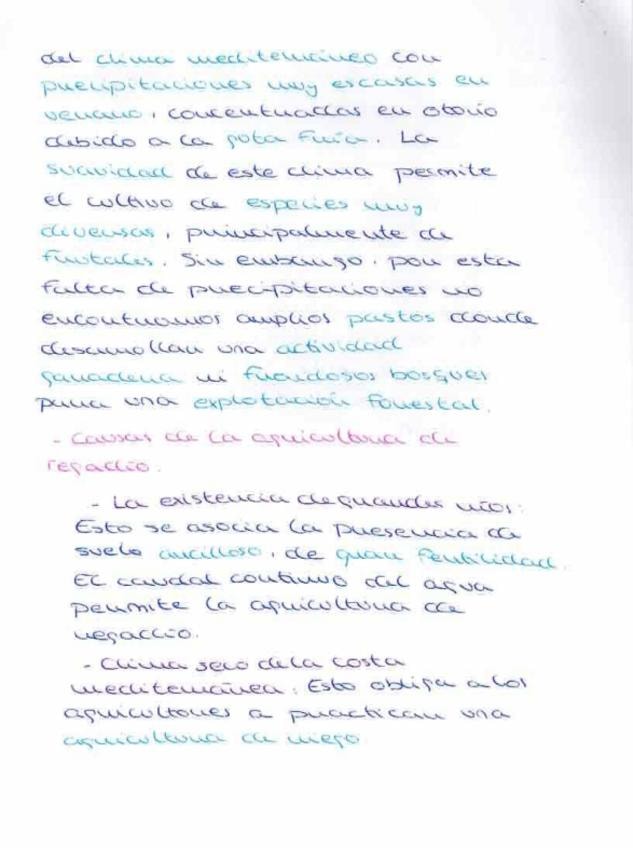 del clima mediterráneo con
precipitaciones muy escasas en
verano, concentradas en otoño
debido a la gota fría. La
suavidad de este clima permite
el cultivo de especies muy
diversas, principalmente de
frutales. Sin embargo, por esta
falta de precipitaciones no
encontramos amplios pastos donde
desarrollar una actividad
ganadera ni frondosos bosques
para una explotación forestal.
- Causas de la agricultura de
regadío.
- La existencia de grandes ríos:
Esto se asocia la presencia de
suelo arcilloso, de gran fertilidad.
El caudal continuo del agua
permite la agricultura de
regadío.
- Clima seco de la costa
mediterránea: Esto obliga a los
agricultores a practicar una
agricultura de riego